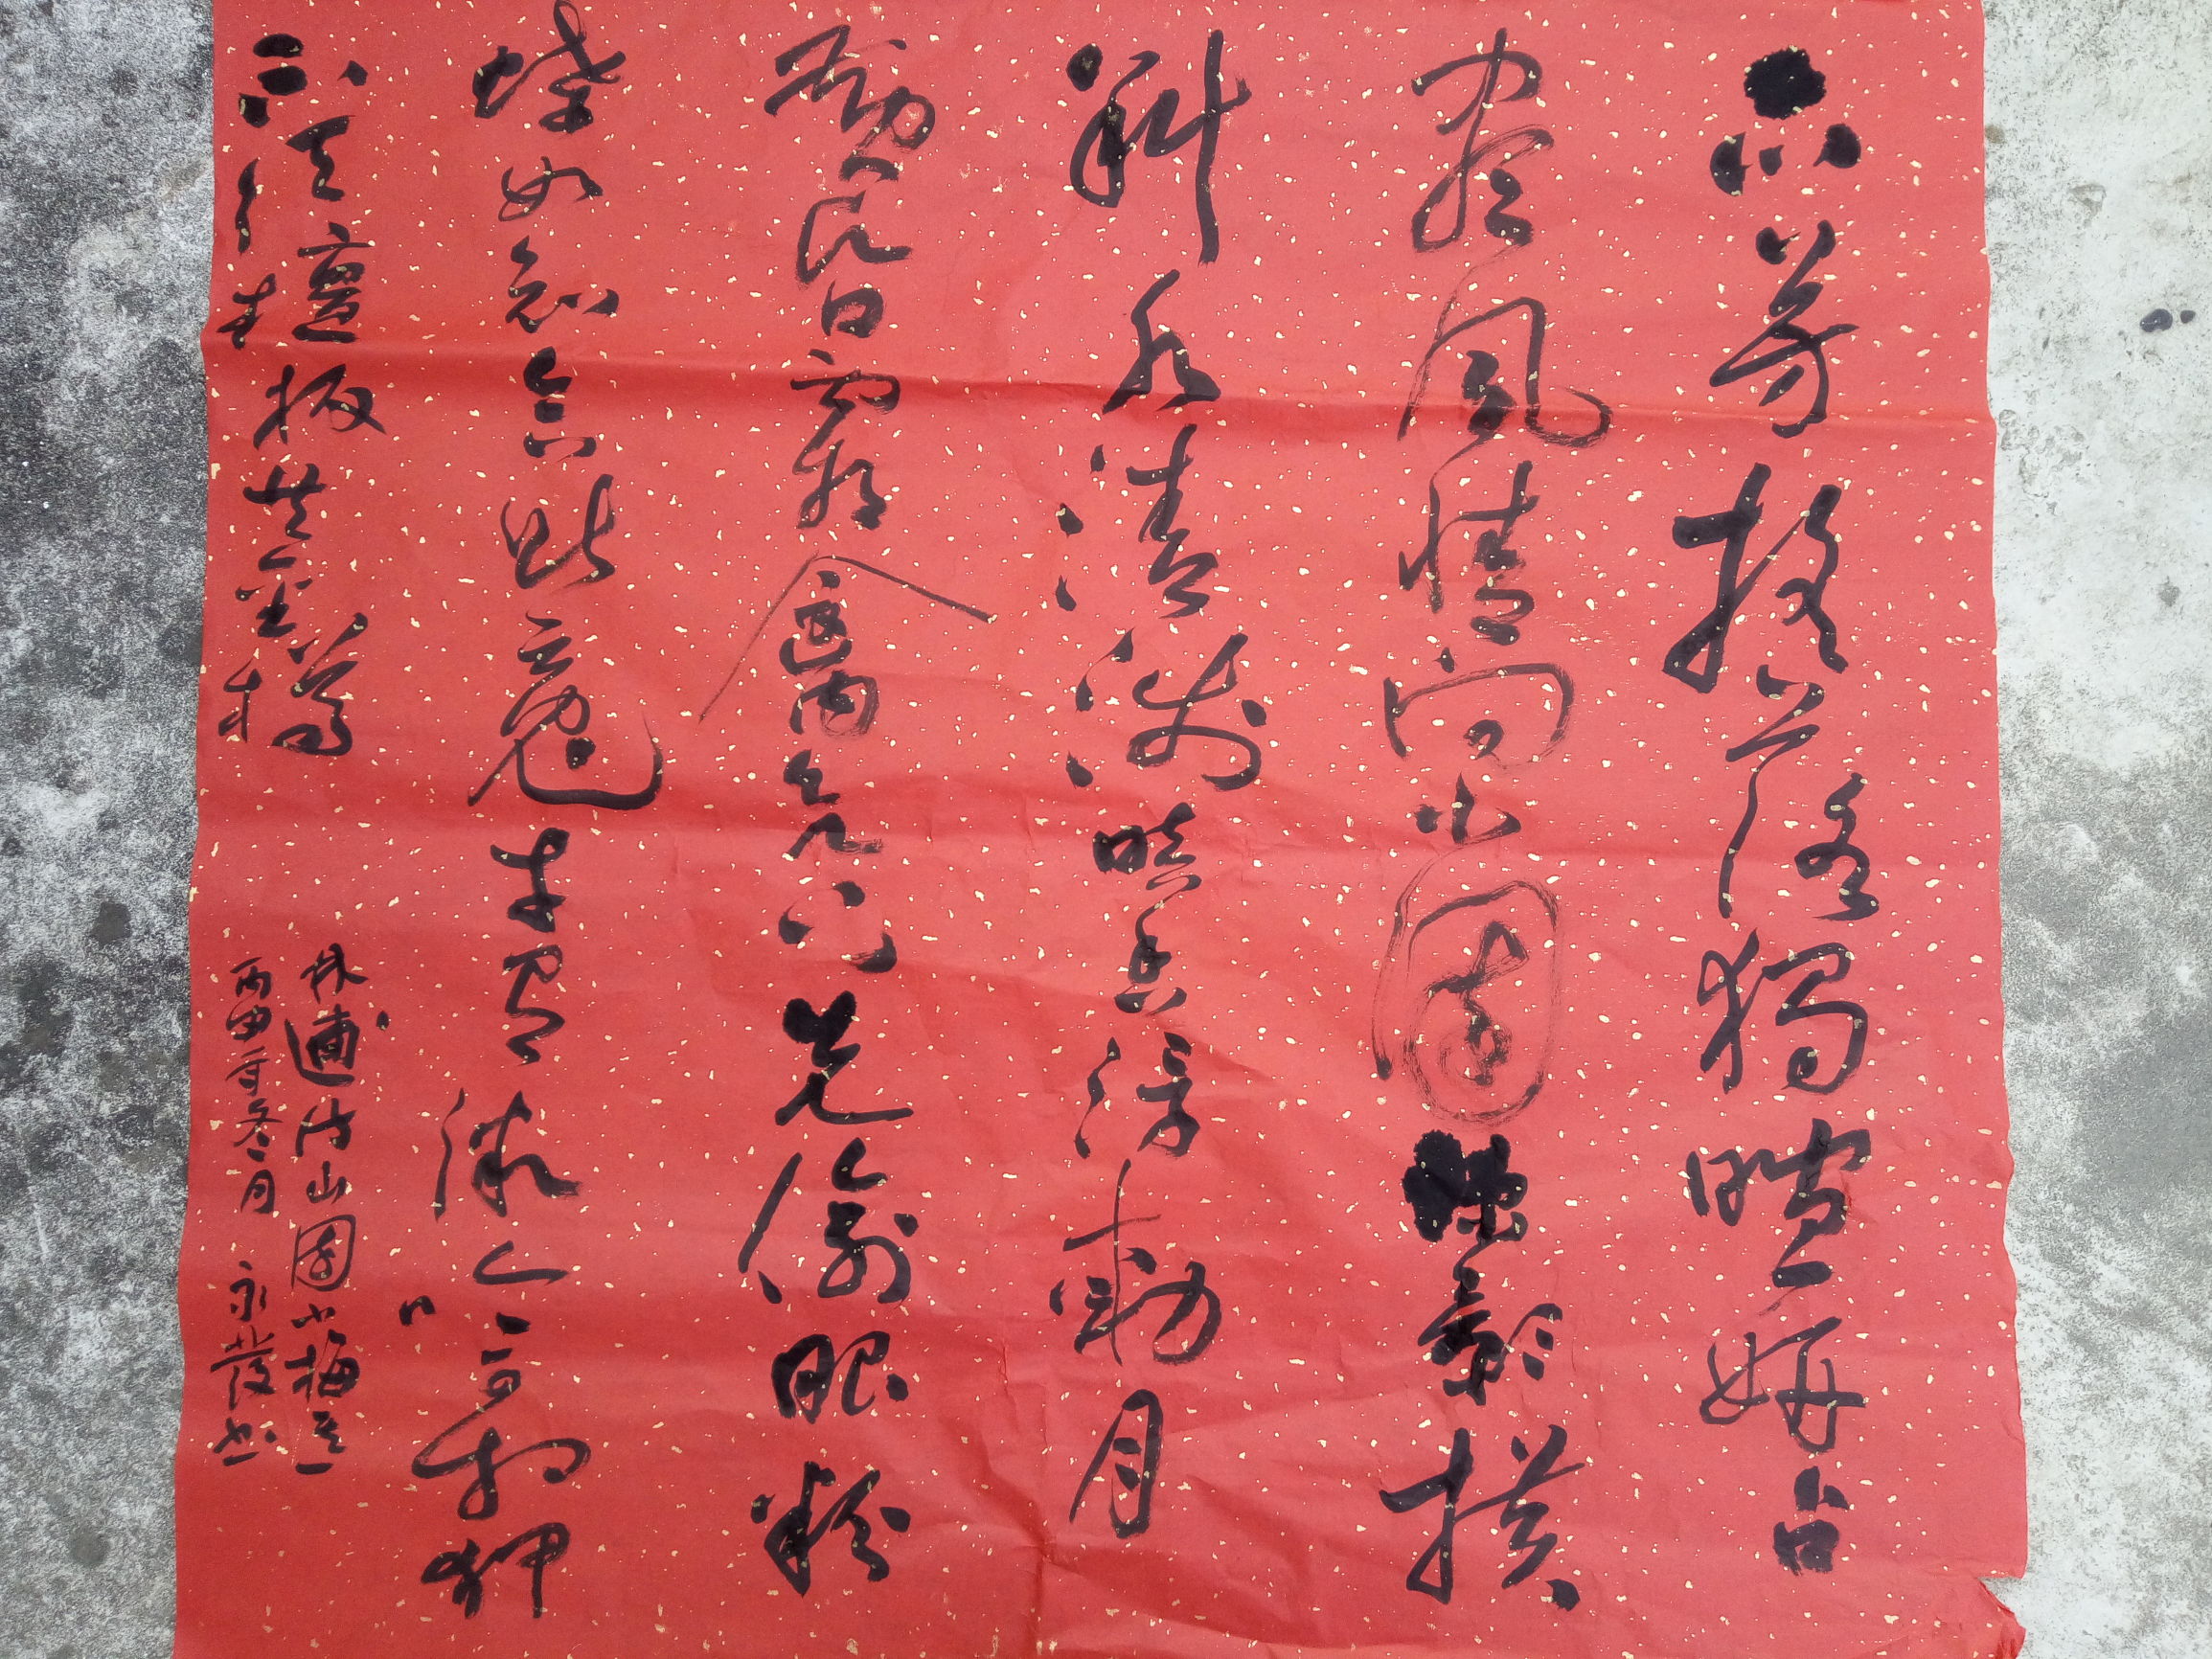 众芳摇落獨暄妍占
尽風情向小園疏影横
斜水清浅暗香浮動月
黄昏霜禽欲下先偷眼粉
蝶如知合断魂幸有微吟可相狎
不须檀板共金樽
林逋诗山園小梅之一
丙申年冬月 永發书